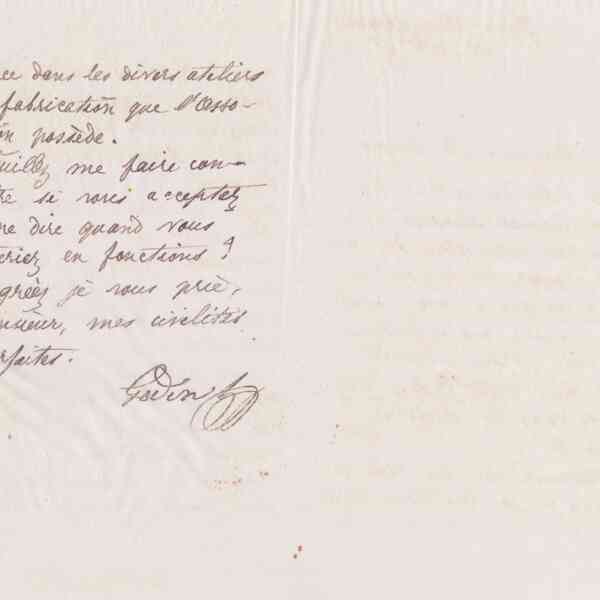 ce dans les divers ateliers
fabrication que l'Asso-
on possède.
uillez me faire con-
tre si vous acceptez
re dire quand vous
eriez en fonctions ?
gréez je vous prie,
nsieur, mes civilités
rfaites.
Godin